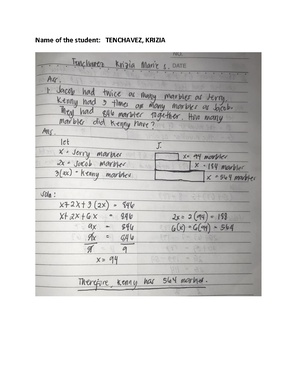 Name of the student: TENCHAVEZ, KRIZIA
Tenchavez Krizia Marie s. DATE
Ans.
1. Jacob had twice as many marbles as Jerry.
Kenny had 3 times as many marbles as Jacob.
They had 846 marbles together. How many
marbles did Kenny have?
Ans
let
x = Jerry marbles
2x = Jacob marbles
3(2x) = Kenny marbles
I.
x = 94 marbles
x = 188 marbles
x = 564 marbles
Solu:
x + 2x + 3 (2x) = 846
x + 2x + 6x = 846
9x = 846
9x = 846
9 9
x = 94
2x = 2 (94) = 188
6(x) = 6(94) = 564
Therefore, Kenny has 564 marbles.